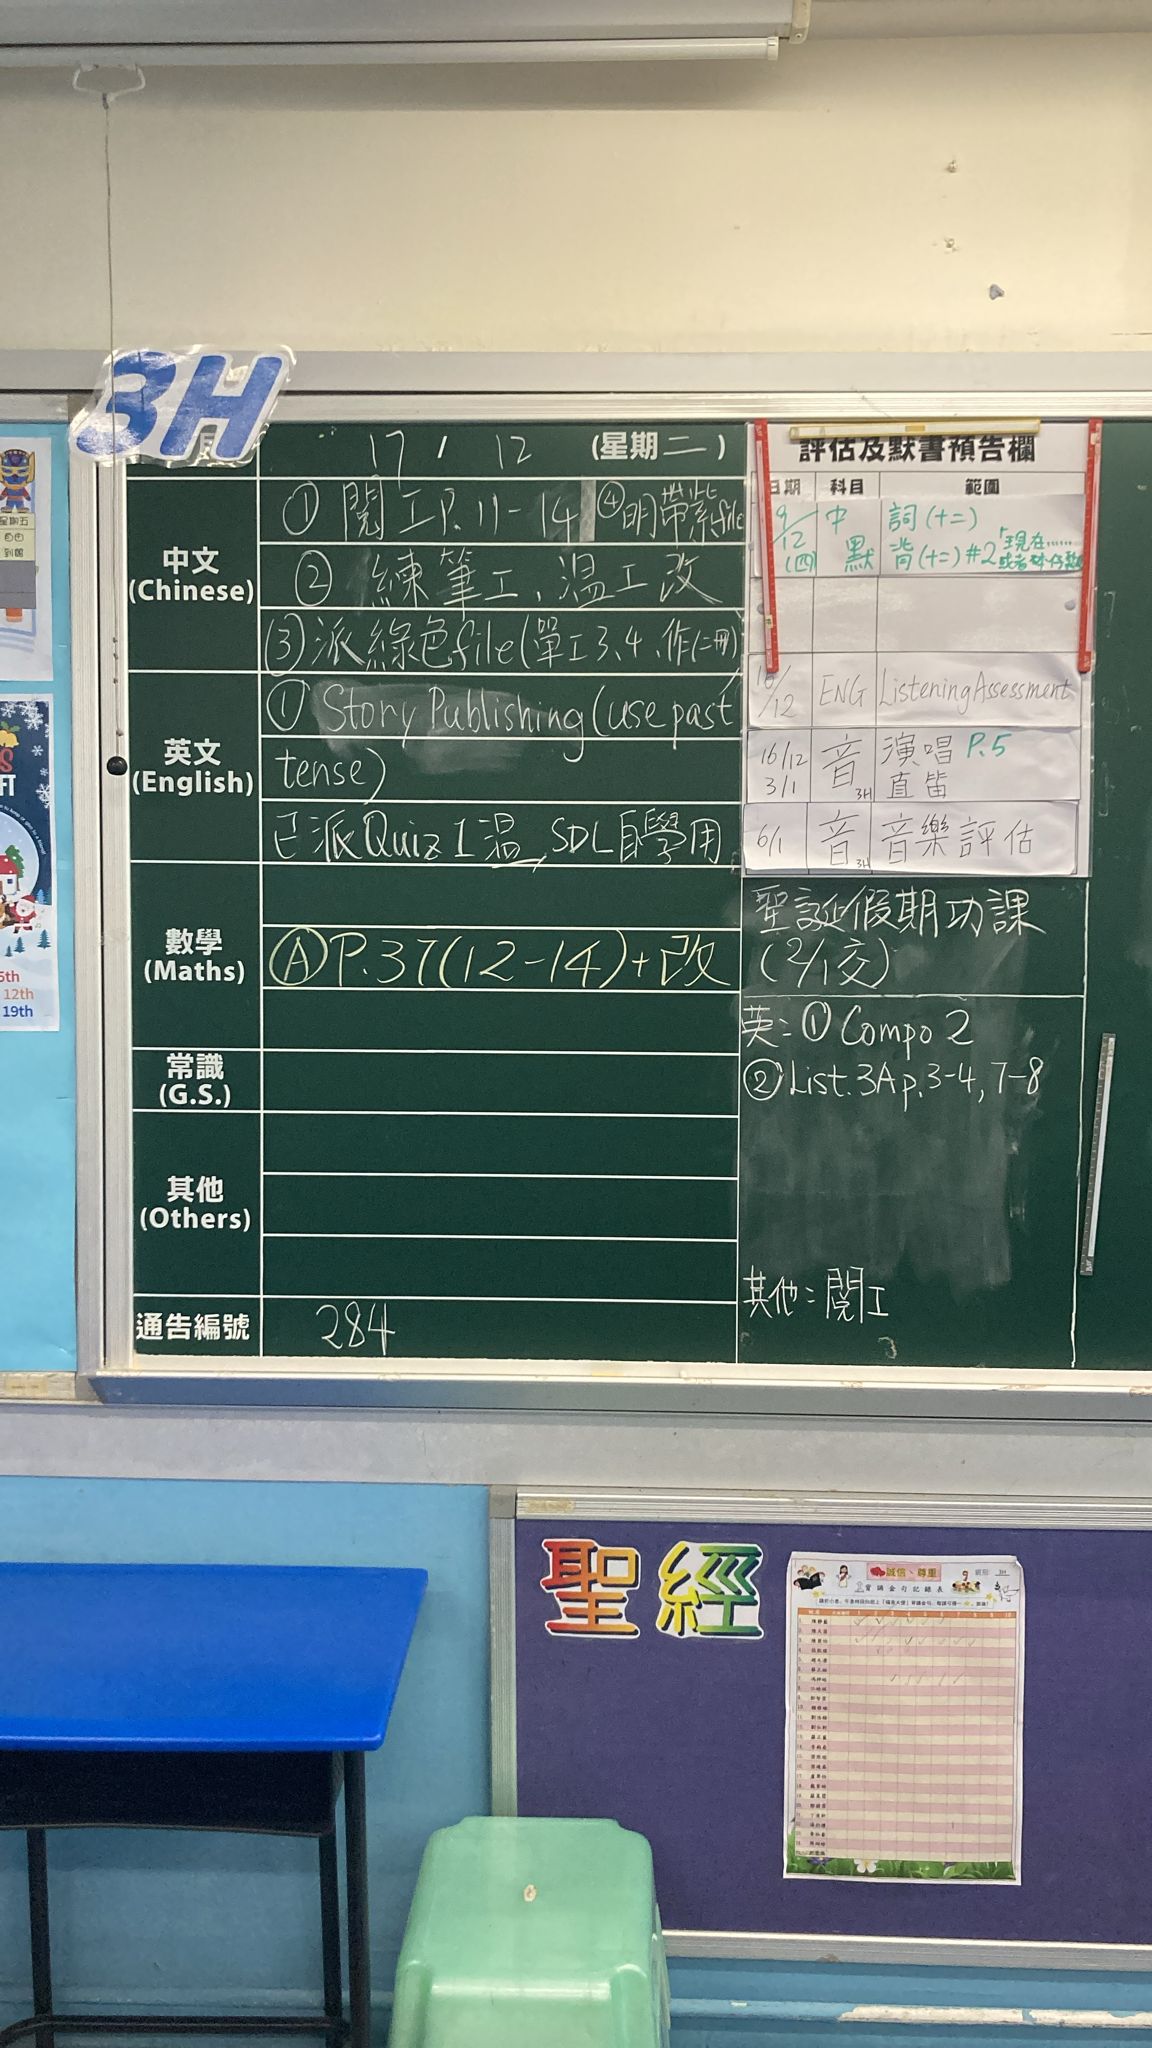 3H
17 / 12 (星期二)
中文
(Chinese)
① 閱工P.11-14 ④明帶紫file
② 練筆工、温工改
③派綠色file(單工3、4、作(二冊)
英文
(English)
① Story Publishing (use past
tense)
已派Quiz 1温, SDL自學用
數學
(Maths)
Ⓐ P.37(12-14)+改
常識
(G.S.)
其他
(Others)
通告編號
284
評估及默書預告欄
日期 科目 範圍
12
(四)
中
默
詞(十二)
背(十二)#2「現在……
/12 ENG Listening Assessment
16/12
3/1
音
3H
演唱 P.5
直笛
6/1 音 3H 音樂評估
聖誕假期功課
(2/1交)
英:① Compo 2
② List. 3A p.3-4, 7-8
其他:閱工
聖經
星期五
自由
到輔
FT
5th
12th
19th
誠信、尊重
背誦金句記錄表